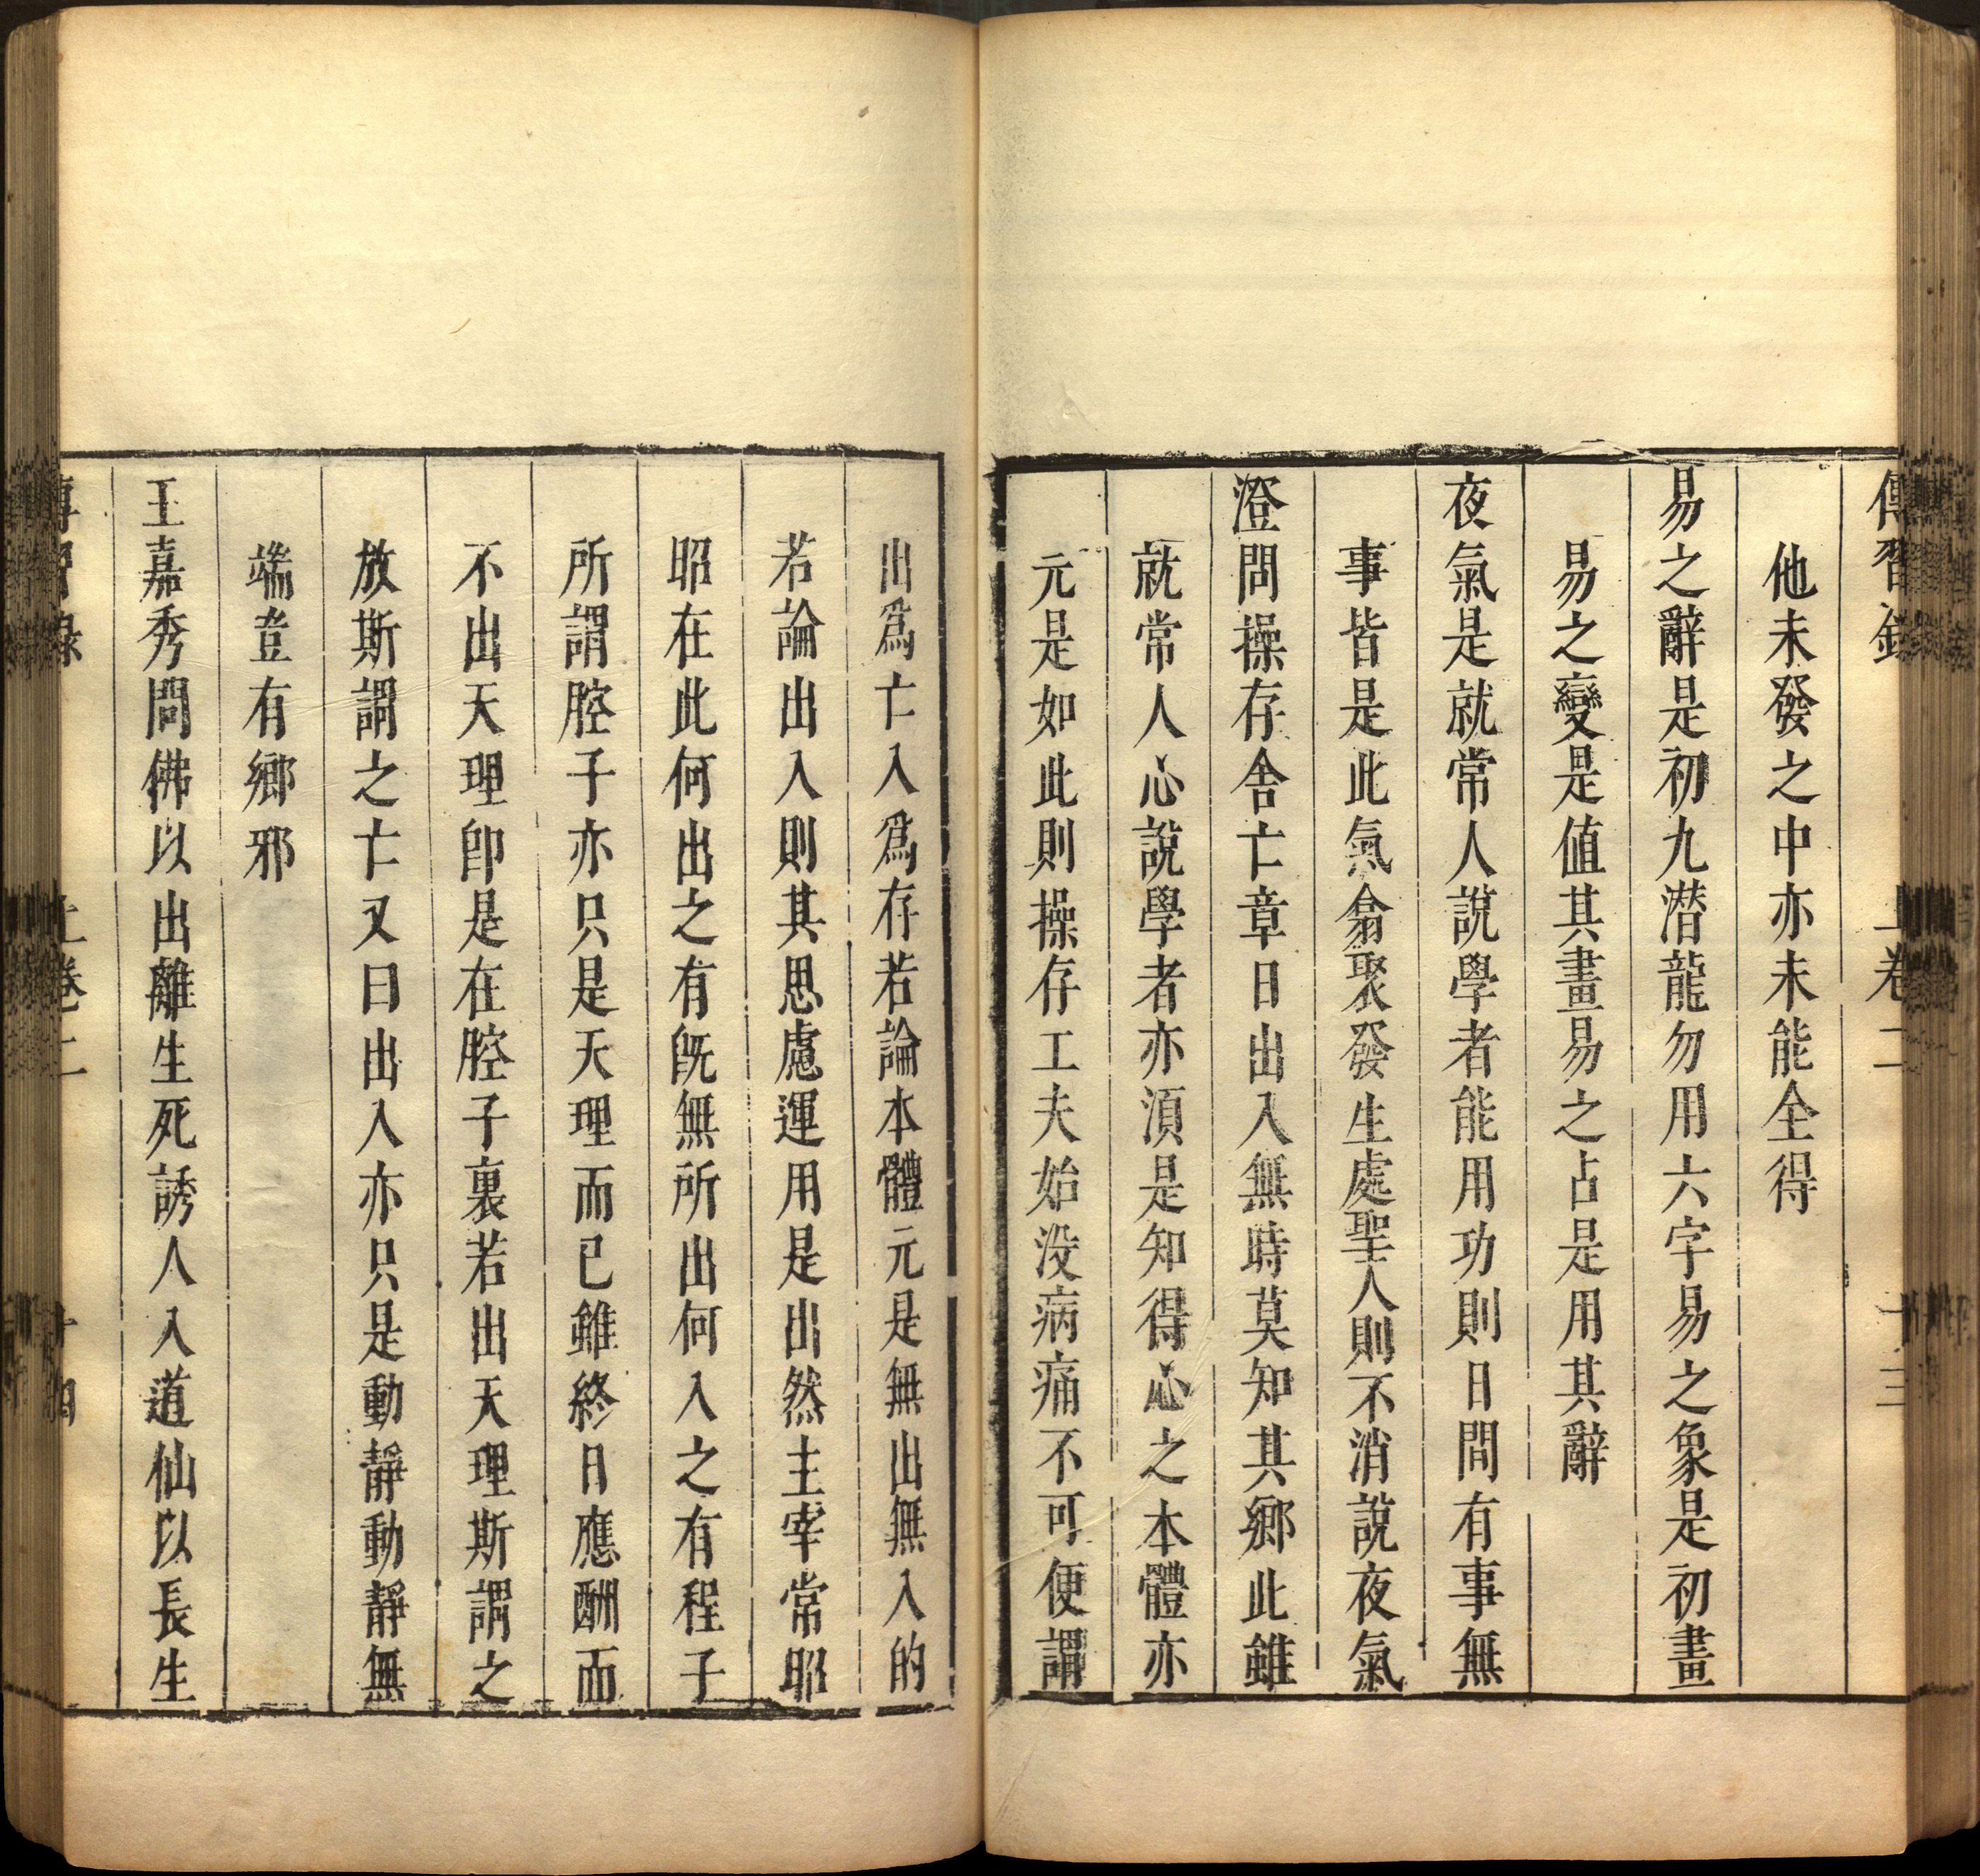 傳習錄 上卷二 十三
他未發之中亦未能全得
易之辭是初九潛龍勿用六字易之象是初畫
易之變是値其畫易之占是用其辭
夜氣是就常人說學者能用功則日間有事無
事皆是此氣翕聚發生處聖人則不消說夜氣
澄問操存舍亡章曰出入無時莫知其鄉此雖
就常人心說學者亦須是知得心之本體亦
元是如此則操存工夫始没病痛不可便謂
出爲亡入爲存若論本體元是無出無入的
若論出入則其思慮運用是出然主宰常昭
昭在此何出之有旣無所出何入之有程子
所謂腔子亦只是天理而已雖終日應酬而
不出天理卽是在腔子裏若出天理斯謂之
放斯謂之亡又曰出入亦只是動靜動靜無
端豈有鄉邪
王嘉秀問佛以出離生死誘人入道仙以長生
傳習錄 上卷二 十四